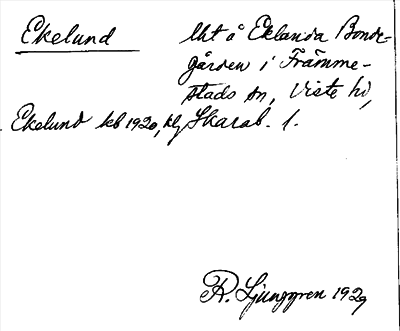 Ekelund
lht å Eklanda Bonde-
gården i Främme-
stads sn, Viste hd,
Ekelund kb 1920, klg Skarab. l.
R. Ljunggren 1929